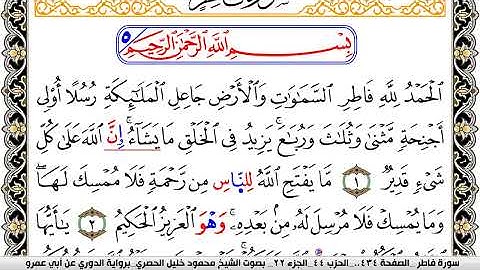 بِسْمِ اللَّهِ الرَّحْمَٰنِ الرَّحِيمِ ٥
الْحَمْدُ لِلَّهِ فَاطِرِ السَّمَٰوَٰتِ وَالْأَرْضِ جَاعِلِ الْمَلَٰٓئِكَةِ رُسُلًا أُو۟لِىٓ
أَجْنِحَةٍ مَّثْنَىٰ وَثُلَٰثَ وَرُبَٰعَ ۚ يَزِيدُ فِى الْخَلْقِ مَا يَشَآءُ ۚ إِنَّ اللَّهَ عَلَىٰ كُلِّ
شَىْءٍ قَدِيرٌ ١ مَّا يَفْتَحِ اللَّهُ لِلنَّاسِ مِن رَّحْمَةٍ فَلَا مُمْسِكَ لَهَا ۖ
وَمَا يُمْسِكْ فَلَا مُرْسِلَ لَهُۥ مِنۢ بَعْدِهِۦ ۚ وَهْوَ الْعَزِيزُ الْحَكِيمُ ٢ يَٰٓأَيُّهَا
سورة فاطر_الصفحة ٤٣٤_ الحزب ٤٤_الجزء ٢٢_ بصوت الشيخ محمود خليل الحصري_برواية الدوري عن أبي عمرو